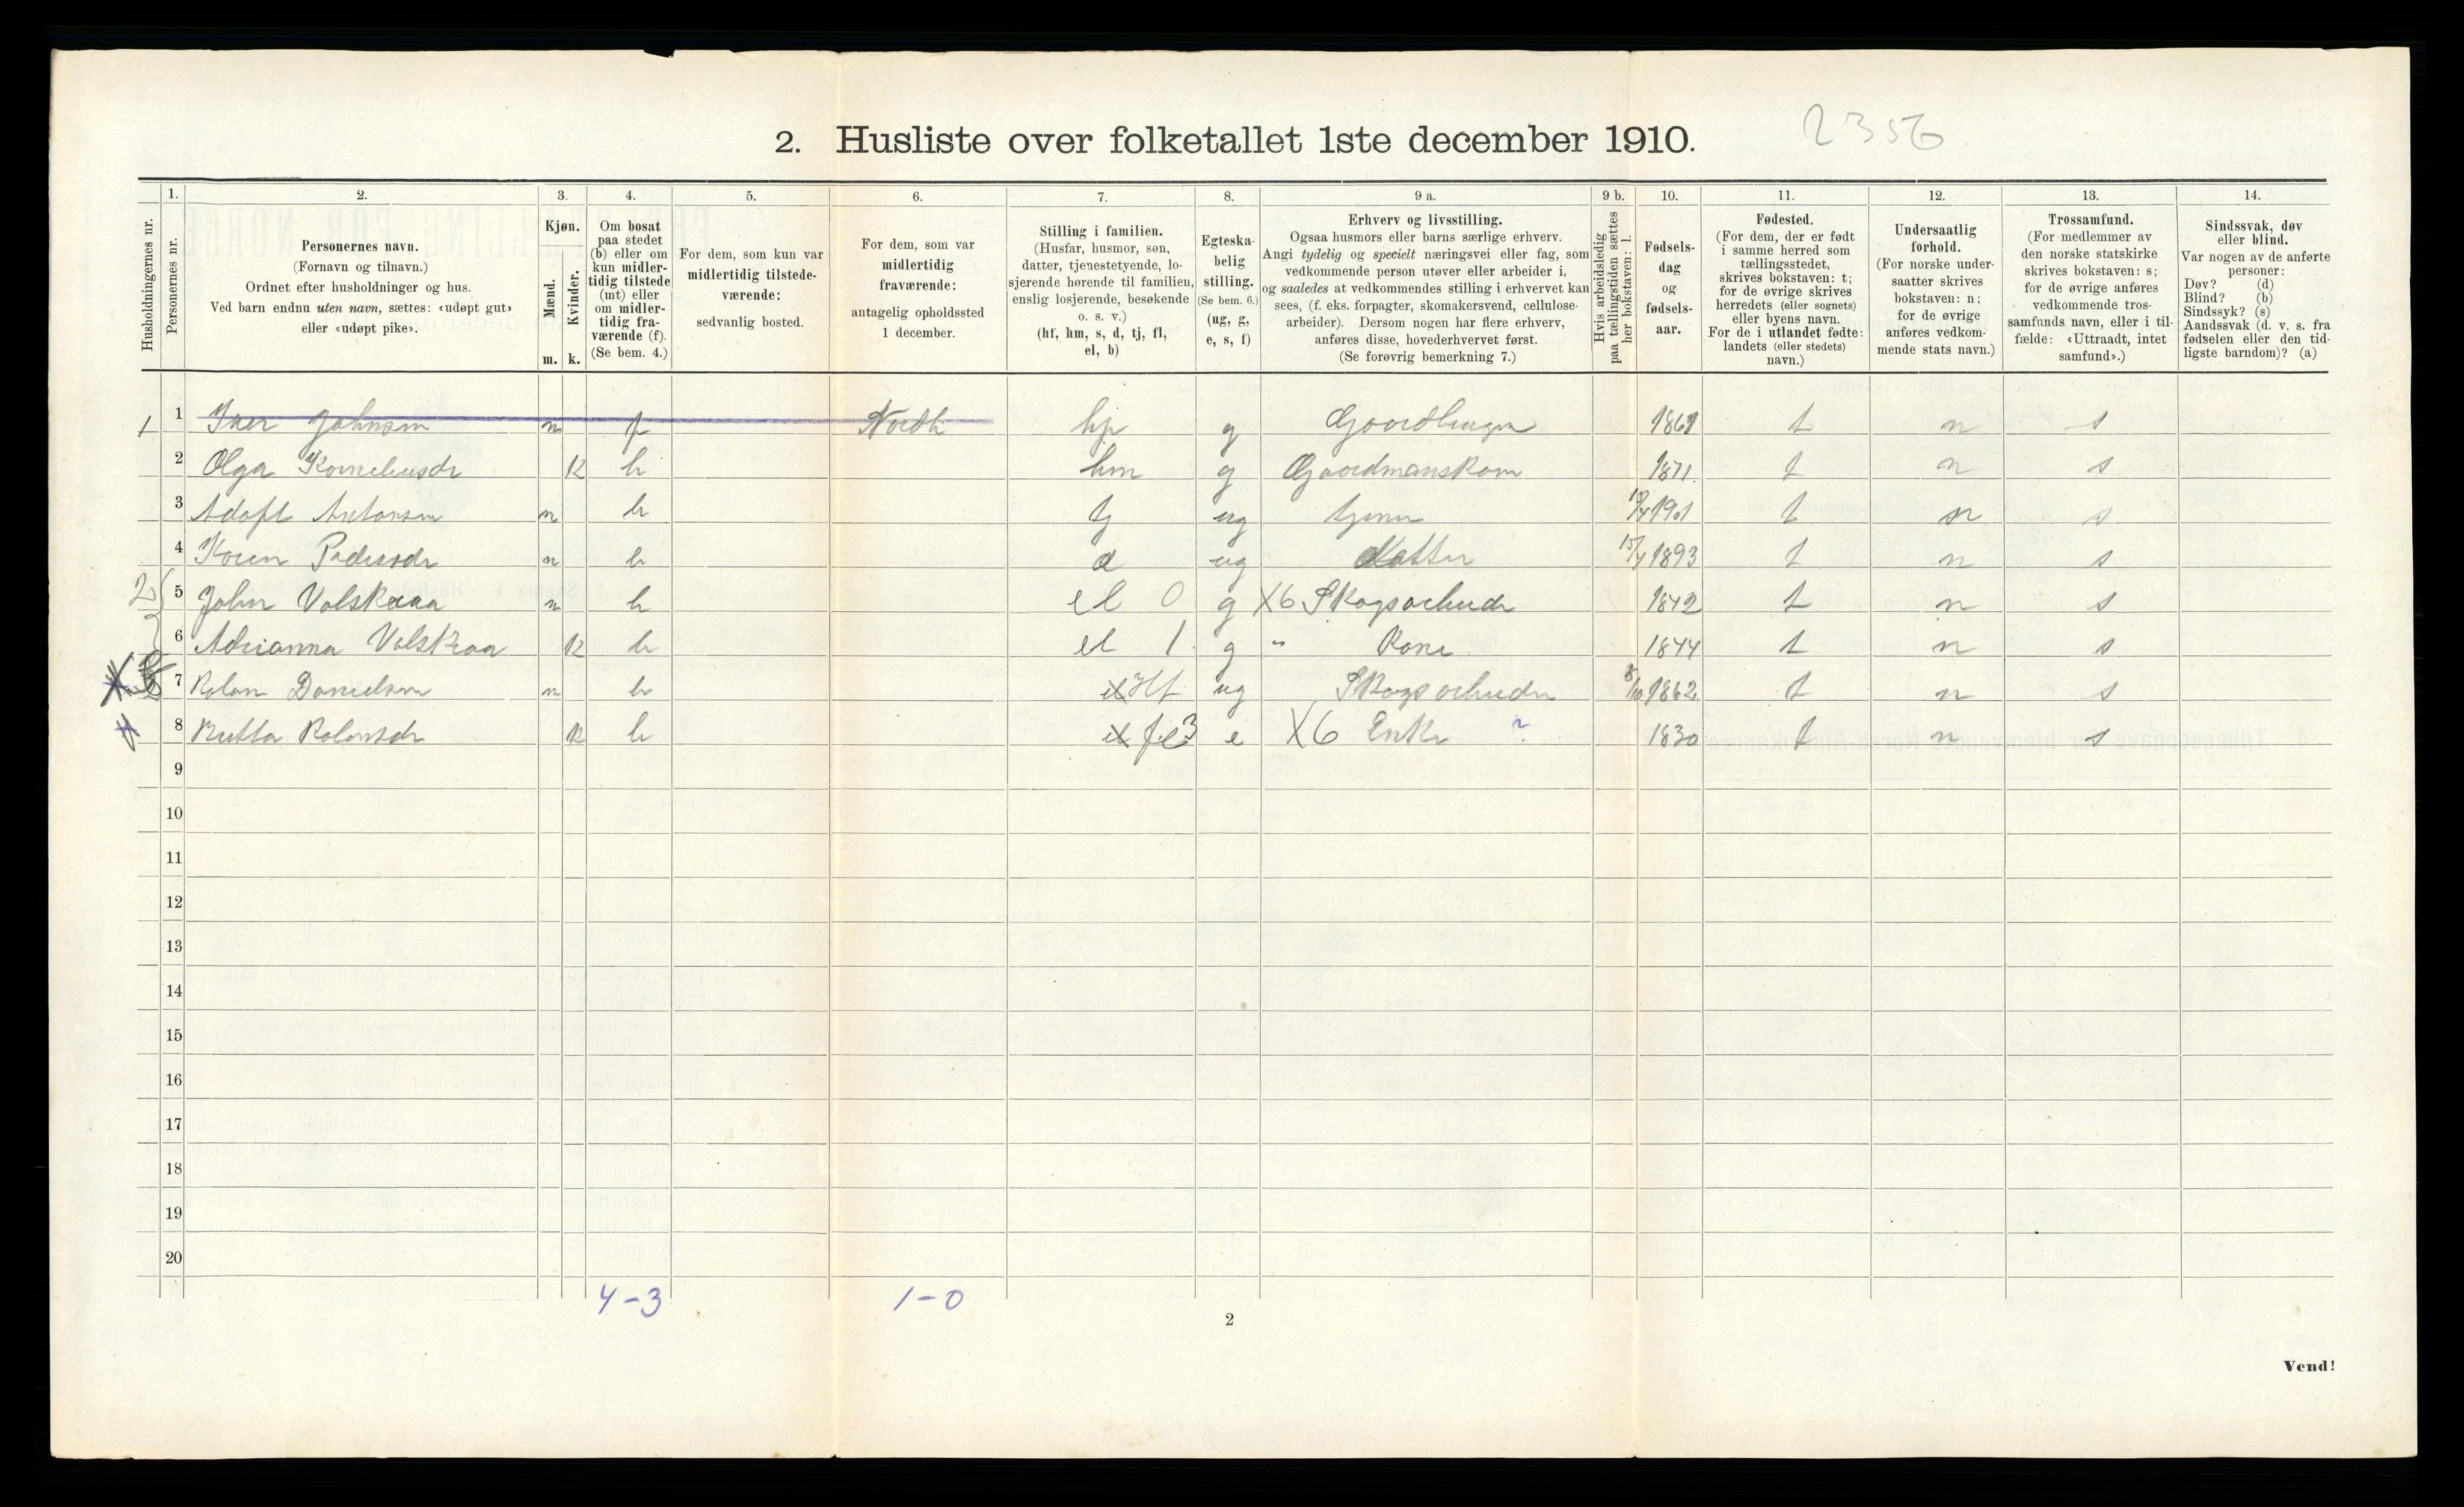 2356
2. Husliste over folketallet 1ste december 1910.
Husholdningernes nr.
1. Personernes nr.
2. Personernes navn. (Fornavn og tilnavn.) Ordnet efter husholdninger og hus. Ved barn endnu uten navn, sættes: «udøpt gut» eller «udøpt pike».
3. Kjøn. Mænd. m. Kvinder. k.
4. Om bosat paa stedet (b) eller om kun midlertidig tilstede (mt) eller om midlertidig fraværende (f). (Se bem. 4.)
5. For dem, som kun var midlertidig tilstedeværende: sedvanlig bosted.
6. For dem, som var midlertidig fraværende: antagelig opholdssted 1 december.
7. Stilling i familien. (Husfar, husmor, søn, datter, tjenestetyende, losjerende hørende til familien, enslig losjerende, besøkende o. s. v.) (hf, hm, s, d, tj, fl, el, b)
8. Egteskabelig stilling. (Se bem. 6.) (ug, g, e, s, f)
9 a. Erhverv og livsstilling. Ogsaa husmors eller barns særlige erhverv. Angi tydelig og specielt næringsvei eller fag, som vedkommende person utøver eller arbeider i, og saaledes at vedkommendes stilling i erhvervet kan sees, (f. eks. forpagter, skomakersvend, cellulosearbeider). Dersom nogen har flere erhverv, anføres disse, hovederhvervet først. (Se forøvrig bemerkning 7.)
9 b. Hvis arbeidsledig paa tællingstiden sættes her bokstaven: l.
10. Fødselsdag og fødselsaar.
11. Fødested. (For dem, der er født i samme herred som tællingsstedet, skrives bokstaven: t; for de øvrige skrives herredets (eller sognets) eller byens navn. For de i utlandet fødte: landets (eller stedets) navn.)
12. Undersaatlig forhold. (For norske undersaatter skrives bokstaven: n; for de øvrige anføres vedkommende stats navn.)
13. Trossamfund. (For medlemmer av den norske statskirke skrives bokstaven: s; for de øvrige anføres vedkommende trossamfunds navn, eller i tilfælde: «Uttraadt, intet samfund».)
14. Sindssvak, døv eller blind. Var nogen av de anførte personer: Døv? (d) Blind? (b) Sindssyk? (s) Aandssvak (d. v. s. fra fødselen eller den tidligste barndom)? (a)
1 1 Iver Johnsen m f hf g 1861 t n s
2 Olga Korneliusdr k b hm g Gaardmanskone 1871 t n s
3 Adolf Antonsen m b tj ug tjener 1901 t n s
4 Peders­dr m b d ug datter 15/4 1893 t n s
2 5 John Valskraa m b el 0 g X6 Skogsarbeider 1842 t n s
6 Adrianna Valskraa k b el 1 g " Kone 1844 t n s
7 Danielsen m b el Hf ug Skogsarbeider 8/10 1862 t n s
8 k b el fl 3 e X6 Enke ? 1830 t n s
9
10
11
12
13
14
15
16
17
18
19
20
4-3 1-0
2
Vend!